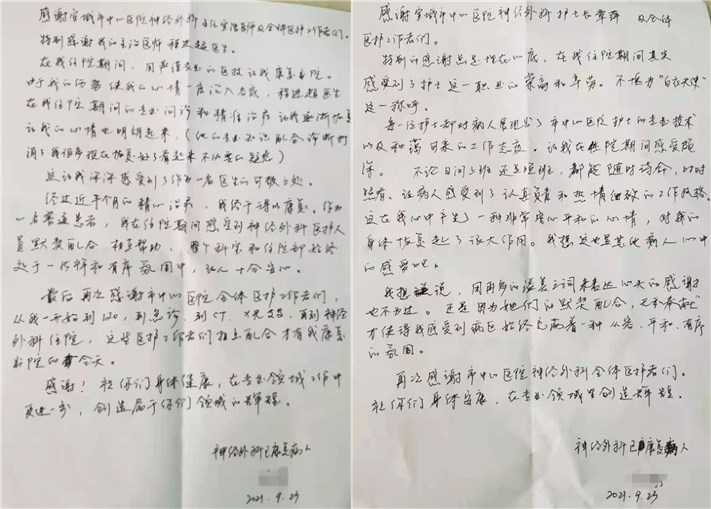 感谢宣城市中心医院神经外科主任 及全体医护工作者们。
特别感谢我的主治医师程进超医生。
在我住院期间，用 的医技让我康复出院。
由于我的伤势使我的心情一度沉入谷底，程进超医生
在我住院期间的专业问诊和精佳治疗让我逐渐恢复
让我的心情也明朗起来，(他的专业知识配合诊断打
消了我很多现在恢复 看起来不必要的疑虑)
这让我深深感受到了作为一名医生的可敬之处。
经过近半个月的精心治疗，我终于得以康复。作为
一名普通患者，我在住院期间感受到神经外科医护人
员默契配合 相互帮助，整个科室和住院部始终
处于一片祥和有序氛围中，让人十分安心。
最后再次感谢市中心医院全体医护工作者们，
从我一开始到120，到急诊，到CT，X光 ，再到神经
外科住院，这些医护工作者们相互配合才有我康复
出院的今天。
感谢！祝你们身体健康，在专业领域工作中
更进一步，创造属于你们领域的辉煌。
神经外科已康复病人
2021.9.23
感谢宣城市中心医院神经外科护士长 及全体
医护工作者们。
特别的感谢总是埋在心底，在我住院期间真实
感受到了护士这一职业的崇高和辛劳。不愧为“白衣天使”
这一称呼。
每一位护士都对病人展现出了市中心医院护士的专业技术
以及和蔼可亲的工作态度。让我在住院期间感受颇
深。不论白日上班还是值班，都能随时待命，时时
照看。让病人感受到了认真负责和热情细致的工作风格。
这在我心中产生了一种非常安心平和的心情，对我的
身体恢复起了很大作用。我想这也是其他病人心中
的感受吧。
我想说，用再多的溢美之词来表达心头的感谢
也不为过。还是因为她们的默契配合，
才使得我感受到病区始终充满着一种从容、平和、有序
的氛围。
再次感谢市中心医院神经外科全体医护者们。
祝你们身体安康，在专业领域里创造辉煌。
神经外科已康复病人
2021.9.23